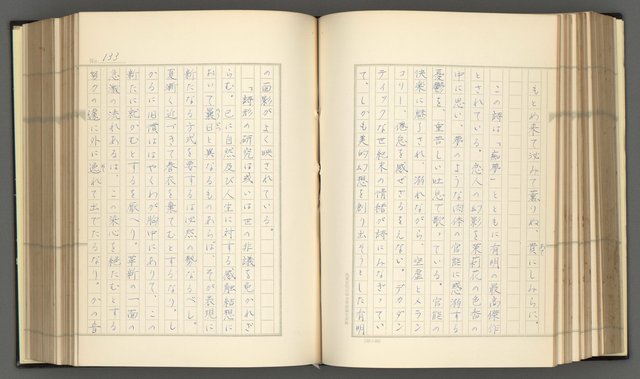 もとめ来て沁みて薫りぬ、貴にしみらに。
この詩は「痴夢」とともに有明の最高傑作
とされている。恋人の幻影を茉莉花の色香の
中に思い、夢のような肉体の官能に惑溺する
憂鬱を、重苦しい吐息で歌っている。官能の
快楽に魅了され、溺れながら、空虚とメラン
コリー、倦怠を感ぜさるをえない。デカダン
ティックな世紀末の情緒が詩にみなぎってい
て、しかも美的幻想を創り出そうとした有明
No. 133
の面影がよく映されている。
「詩形の研究は或いは世の非議を免かれざ
らむ。已に自然及び人生に対する感触結想に
おいて曩日と異なるものあらば、そが表現に
新たなる方式を要するは必然の勢なるべし。
夏漸く近づきて春衣を棄てむとするなり。し
かるに旧慣ははやくわが胸中にありて、この
新たに就かむとするを厭へり。革新の一面の
急激の流れあるは、この染心を絶たむとする
努力の遂に外に逸れて出でたるなり。かの音